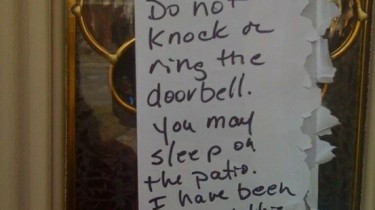 Do not
knock or
ring the
doorbell.
You may
sleep on
the patio.
I have been